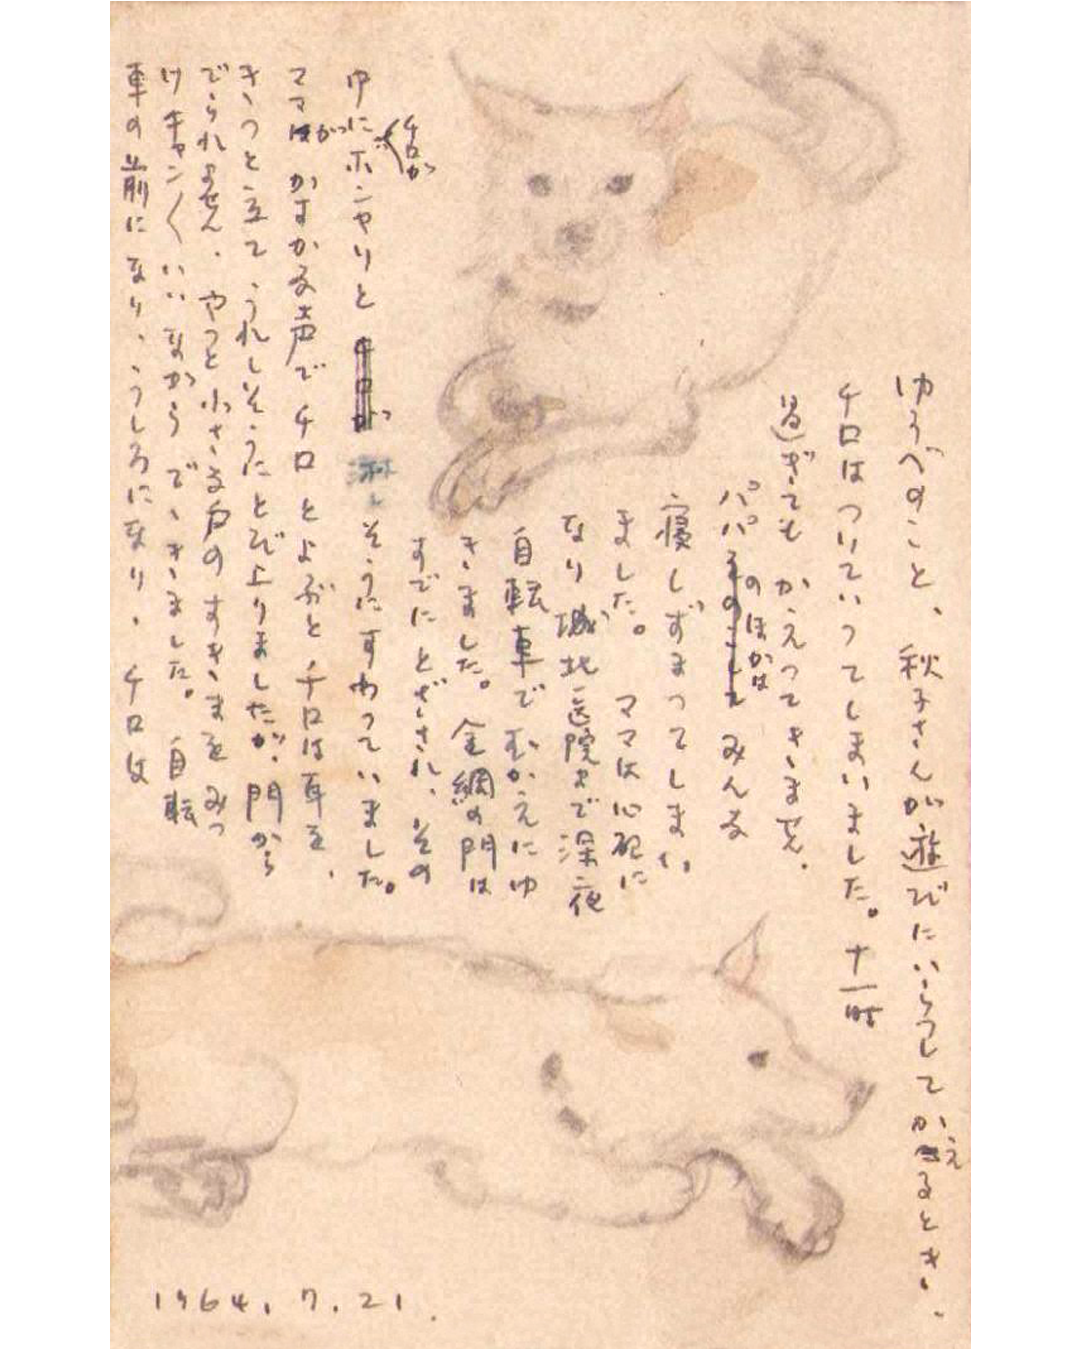 ゆうべのこと、秋子さんが遊びにいらつしてかえるとき、
チロはついていってしまいました。十一時
過ぎても かえってきません、
パパのほかは みんな
寝しずまってしまい
ました。 ママは心配に
なり 城北医院まで深夜
自転車で むかえにゆ
きました。金網の門は
すでに とざされ、その
中にホンヤリと チロが 淋しそうにすわっていました。
ママが かすかな声で チロ とよぶと チロは耳を、
きつと立て うれしそうにとび上りましたが、門から
でられません、やっと小さな戸のすきまを みつ
け キャン〱 いいながら でゝきました。自転
車の前になり、うしろになり、チロは
1964. 7. 21.